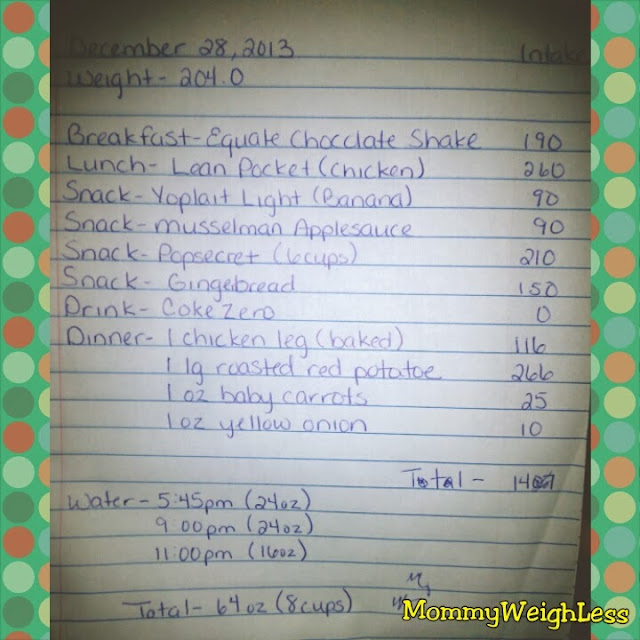 December 28, 2013 Intake
Weight- 204.0
Breakfast- Equate Chocolate Shake 190
Lunch- Lean Pocket (chicken) 260
Snack- Yoplait Light (Banana) 90
Snack- musselman Applesauce 90
Snack- Popsecret (6cups) 210
Snack- Gingerbread 150
Drink- Coke Zero 0
Dinner- 1 chicken leg (baked) 116
1 lg roasted red potatoe 266
1 oz baby carrots 25
1 oz yellow onion 10
Total- 1407
Water- 5:45pm (24oz)
9:00pm (24oz)
11:00pm (16oz)
Total- 64oz (8cups)
MommyWeighLess